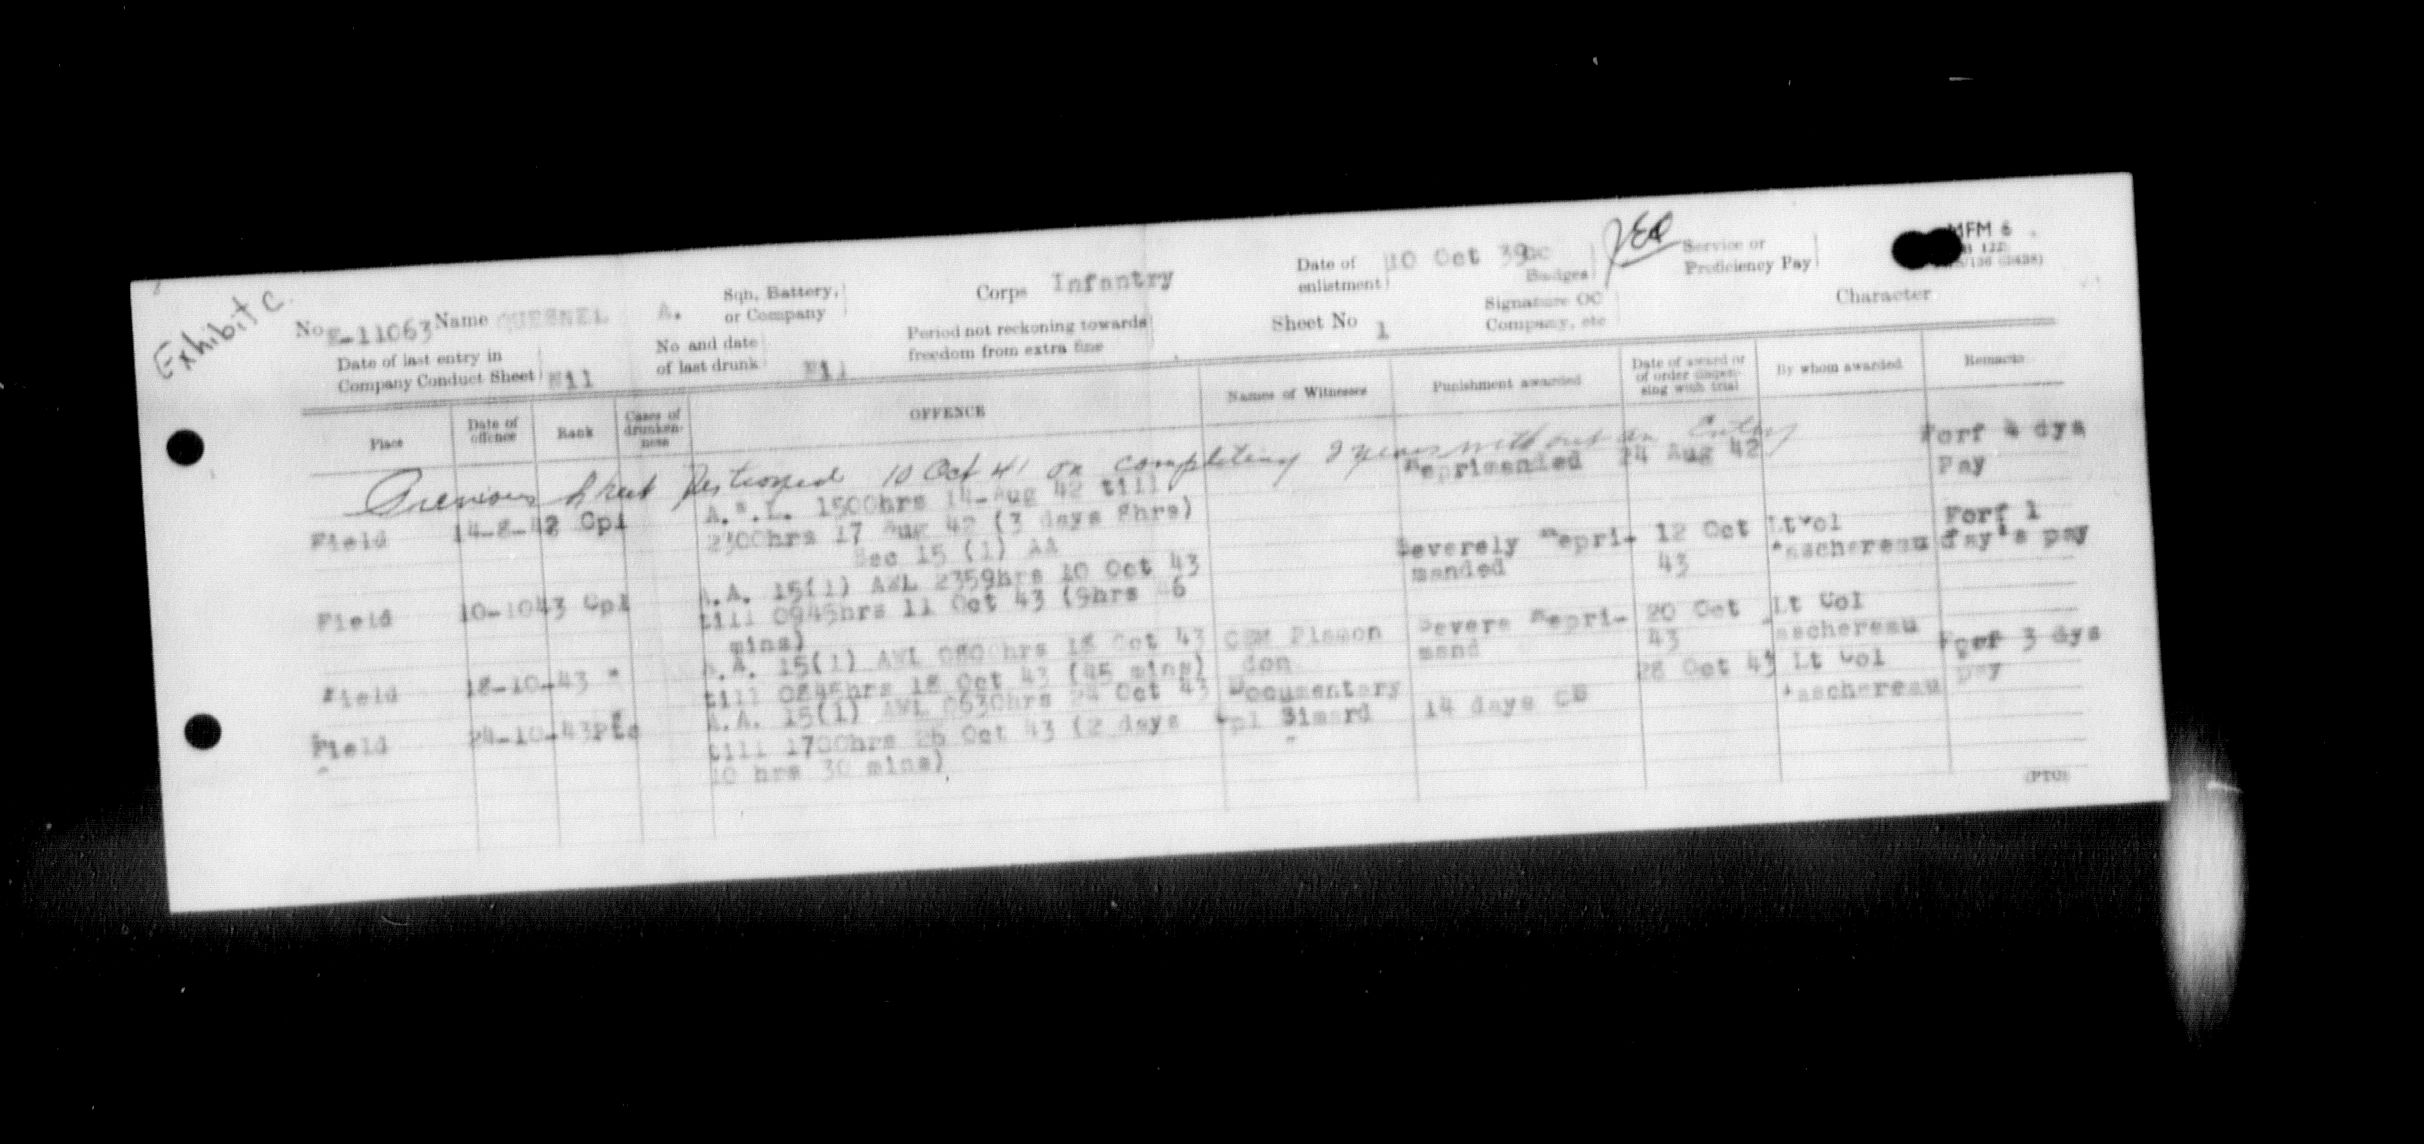 Exhibit C
No E-11063 Name QUESNEL A. Sqn, Battery, or Company Corps Infantry Date of enlistment 10 Oct 39 GC Badges Service or Proficiency Pay MFM 6
Date of last entry in Company Conduct Sheet Nil No and date of last drunk Nil Period not reckoning towards freedom from extra fine Sheet No 1 Signature OC Company, etc Character
Place Date of offence Rank Cases of drunkenness OFFENCE Names of Witnesses Punishment awarded Date of award or of order dispensing with trial By whom awarded Remarks
Previous Sheet Destroyed 10 Oct 41 on completing 2 years without an Entry
Field 14-8-42 Cpl A.W.L. 1500hrs 14-Aug 42 till Reprimanded 24 Aug 42 Forf 4 dys
2300hrs 17 Aug 42 (3 days 8hrs) Pay
Sec 15 (1) AA
Field 10-1043 Cpl A.A. 15(1) AWL 2359hrs 10 Oct 43 Severely Repri- 12 Oct Lt Col Forf 1
till 0945hrs 11 Oct 43 (9hrs 46 manded 43 Taschereau day's pay
mins)
Field 18-10-43 " A.A. 15(1) AWL 0800hrs 18 Oct 43 CSM Plamon Severe Repri- 20 Oct Lt Col
till 0845hrs 18 Oct 43 (45 mins) don mand 43 Taschereau
Field 24-10-43 Pte A.A. 15(1) AWL 0630hrs 24 Oct 43 Documentary 14 days CB 28 Oct 43 Lt Col Forf 3 dys
" till 1700hrs 26 Oct 43 (2 days Cpl Simard Taschereau pay
10 hrs 30 mins) "
(PTO)